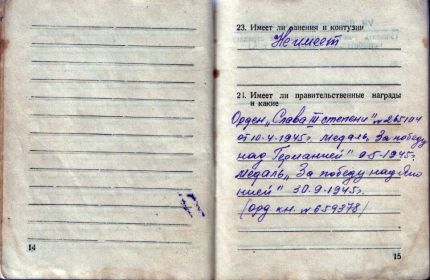 23. Имеет ли ранения и контузии
Не имеет
24. Имеет ли правительственные награды
и какие
Орден „Слава III степени" № 265104
от 10-4-1945г. медаль „За победу
над Германией" 9-5-1945г.
медаль „За победу над Япо
нией" 30-9-1945г.
(орд кн. № 659378)
14
15